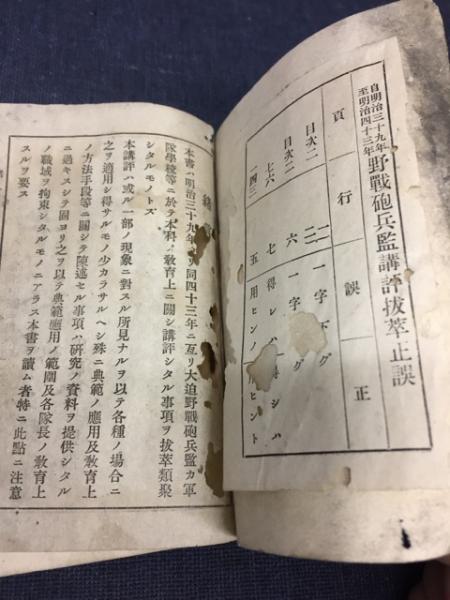 自明治三十九年
至明治四十三年
野戰砲兵監講評拔萃正誤
頁 行 誤 正
目次二 一二 一字下グ
目次二 六 一字 グ
七六 七 得レハ 得シハ
一四三 五 用ヒンノ 用ヒント
緒
本書ハ明治三十九年ヨリ同四十三年ニ亙リ大迫野戰砲兵監カ軍
隊學校等ニ於テ本科ノ敎育上ニ關シ講評シタル事項ヲ拔萃類聚
シタルモノトズ
本講評ハ或ル一部ノ現象ニ對スル所見ナルヲ以テ各種ノ場合ニ
之ヲ適用シ得サルモノ少カラサルヘシ殊ニ典範ノ應用及敎育上
ノ方法手段等ニ關シテ陳述セル事項ハ硏究ノ資料ヲ提供シタル
ニ過キスシテ固ヨリ之ヲ以テ典範應用ノ範圍及各隊長ノ敎育上
ノ職域ヲ拘束シタルモノニアラス本書ヲ讀ム者特ニ此點ニ注意
スルヲ要ス